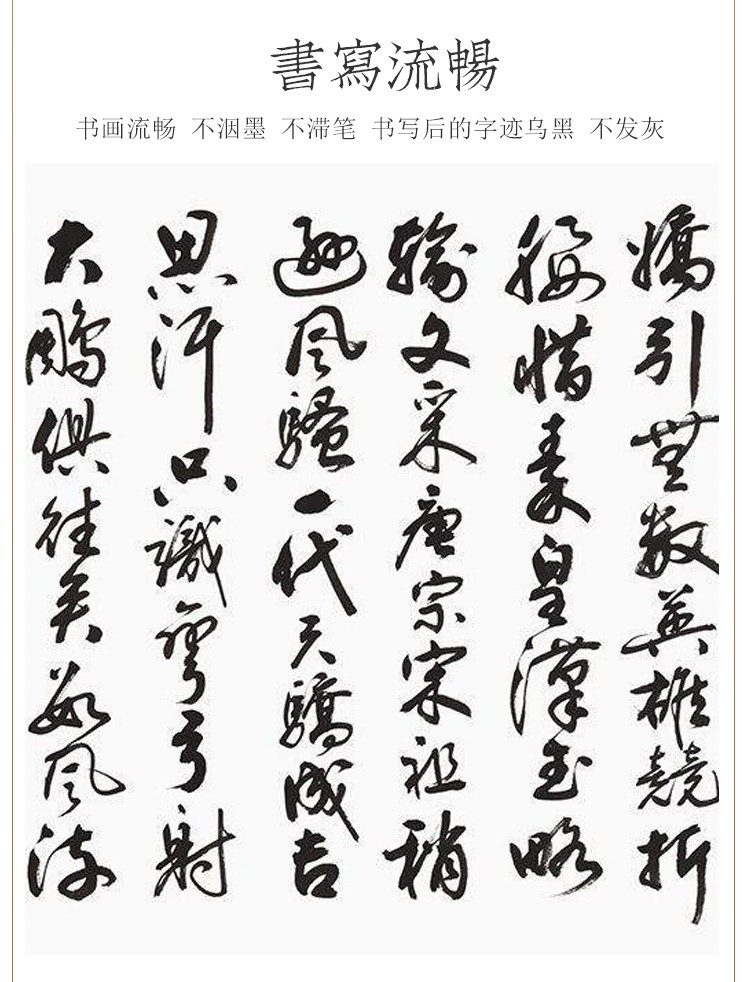 書寫流暢
书画流畅 不洇墨 不滞笔 书写后的字迹乌黑 不发灰
嬌引無數英雄競折
腰惜秦皇漢武略
輸文采唐宗宋祖稍
遜風騷一代天驕成吉
思汗只識彎弓射
大鵰俱往矣數風流